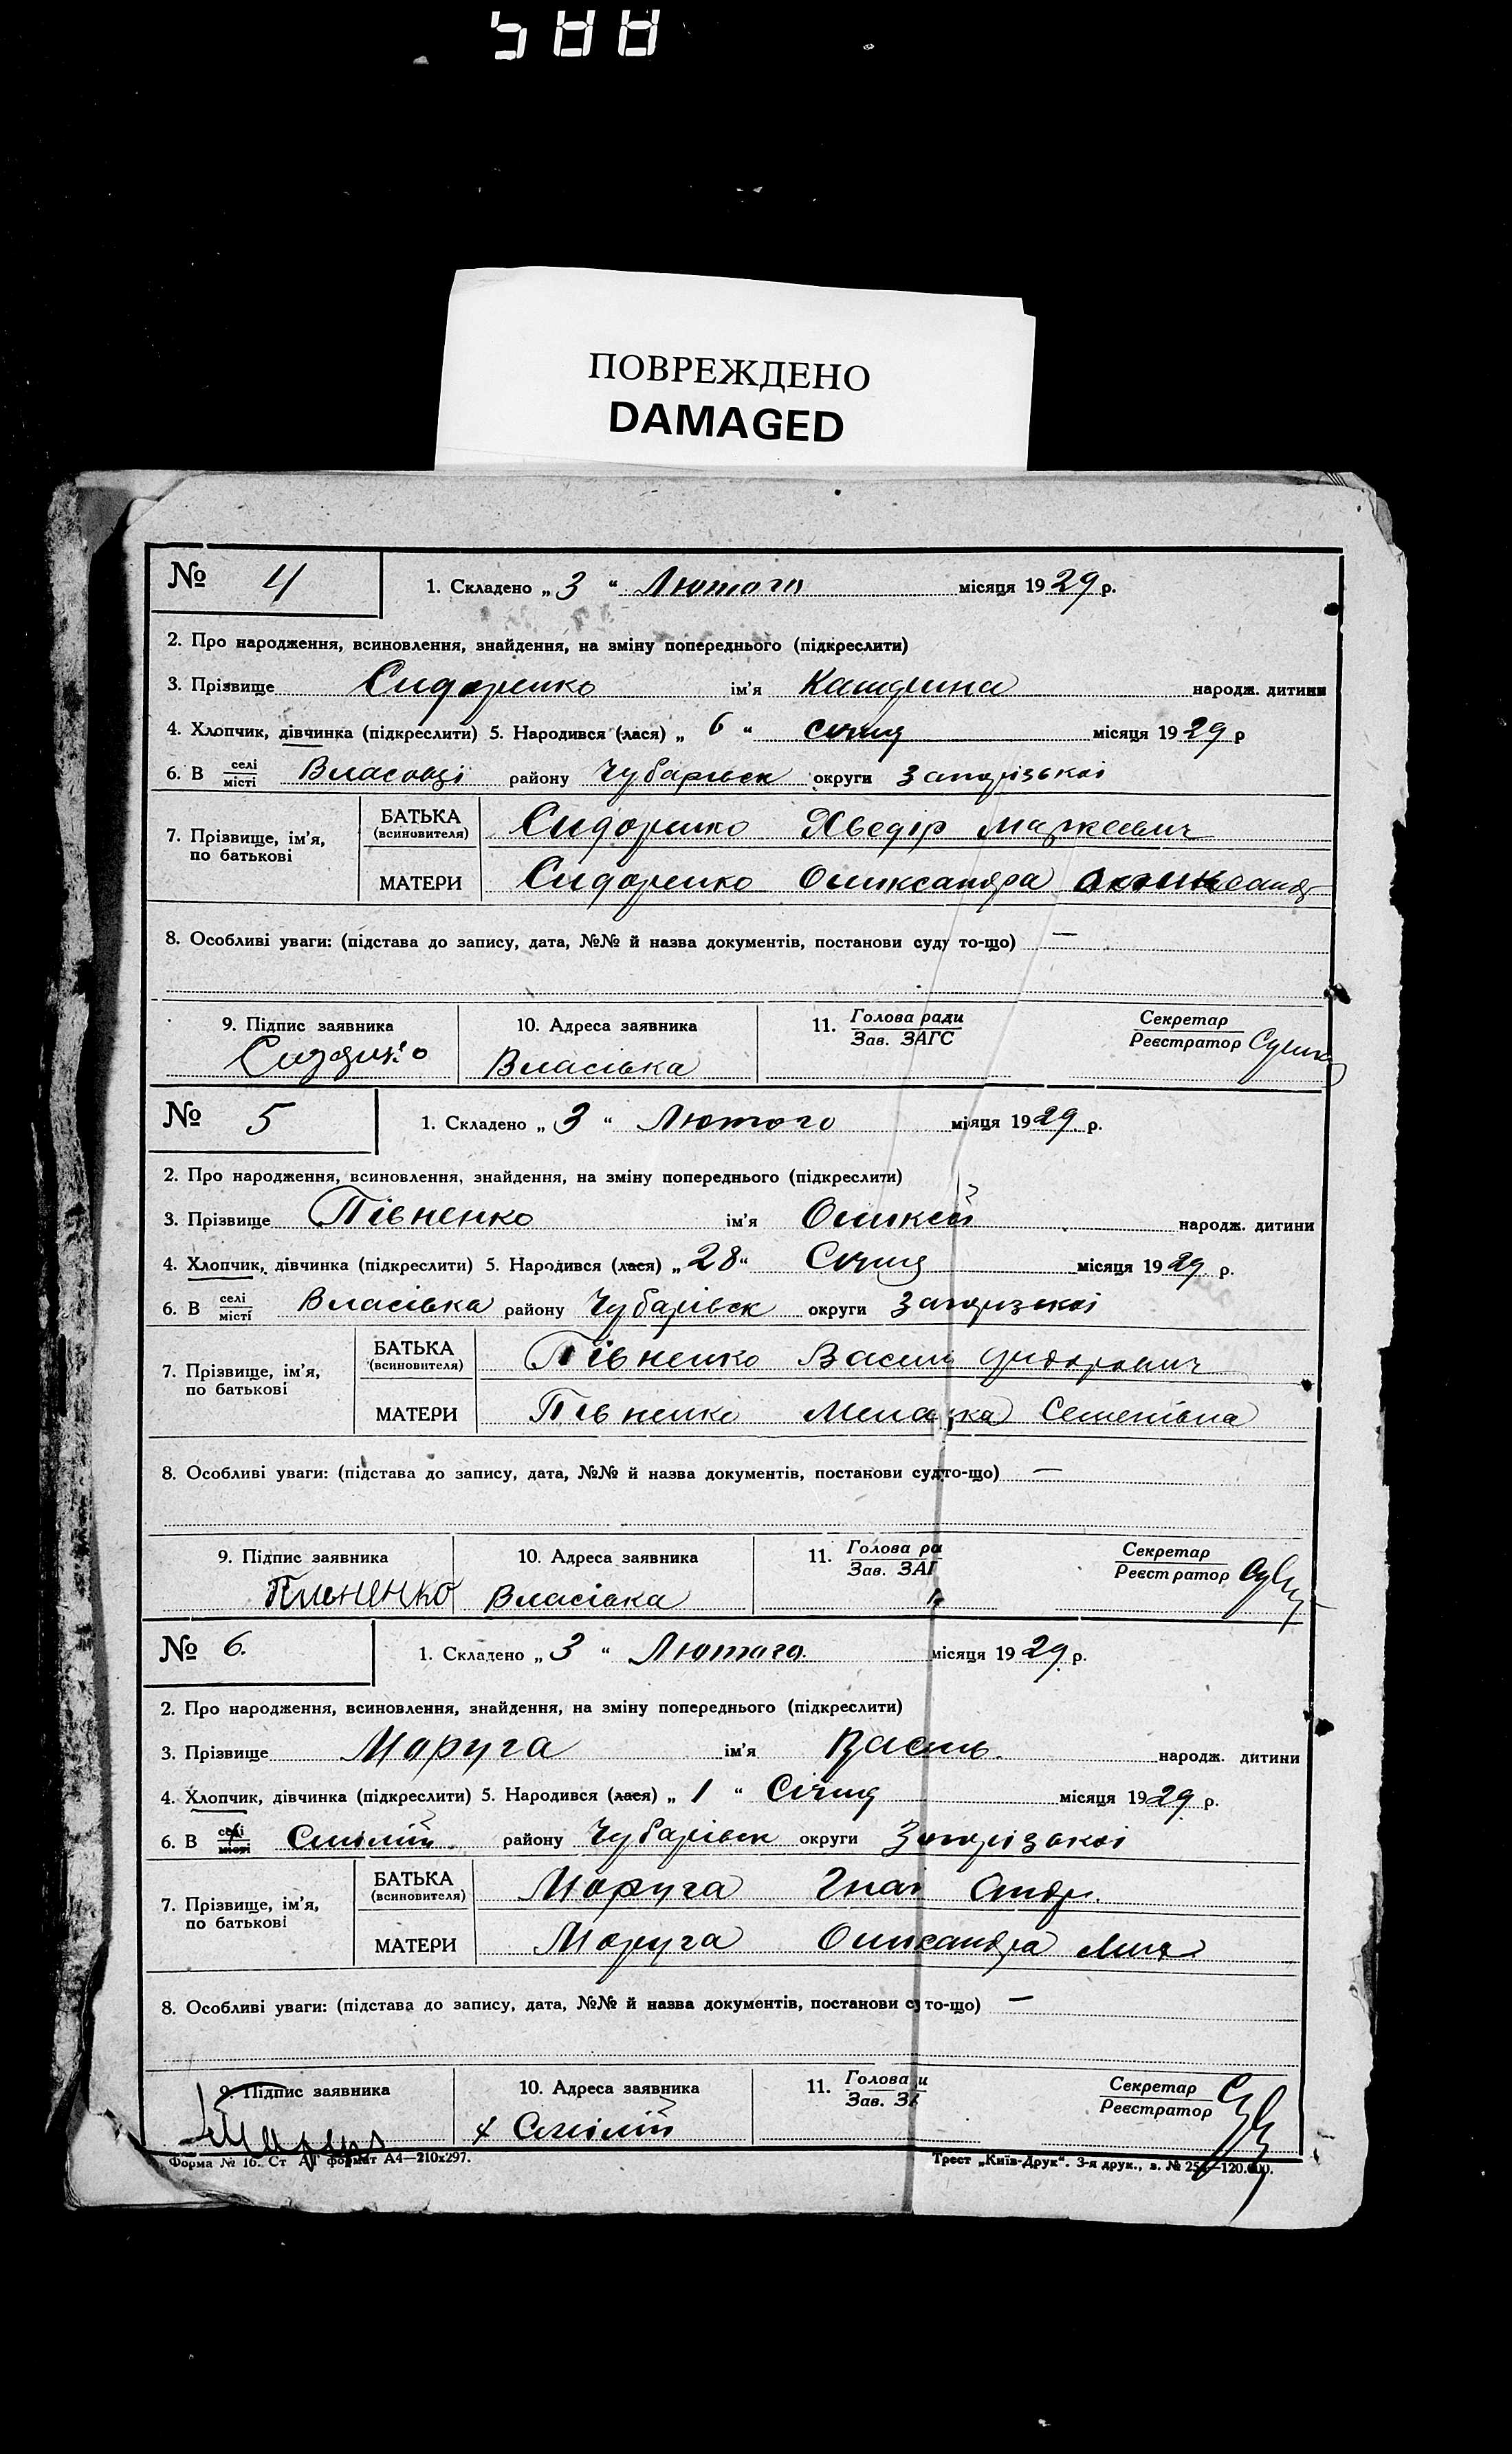 ПОВРЕЖДЕНО
DAMAGED
№ 4 1. Складено „ 3 “ Лютого місяця 1929 р.
2. Про народження, всиновлення, знайдення, на зміну попереднього (підкреслити)
3. Прізвище Сидоренко ім'я Катерина народж. дитини
4. Хлопчик, дівчинка (підкреслити) 5. Народився (лася) „ 6 “ січня місяця 1929 р
6. В селі місті Власовці району Чубарівск округи Запорізької
7. Прізвище, ім'я, по батькові
БАТЬКА (всиновителя) Сидоренко Хведір Маркевич
МАТЕРИ Сидоренко Олександра
8. Особливі уваги: (підстава до запису, дата, №№ й назва документів, постанови суду то-що) —
9. Підпис заявника 10. Адреса заявника 11. Голова ради Зав. ЗАГС Секретар Реєстратор
Власівка
№ 5 1. Складено „ 3 “ Лютого міяця 1929 р.
2. Про народження, всиновлення, знайдення, на зміну попереднього (підкреслити)
3. Прізвище Півненко ім'я Оликсій народж. дитини
4. Хлопчик, дівчинка (підкреслити) 5. Народився (лася) „ 28 “ Січня місяця 1929 р.
6. В селі місті Власівка району Чубарівск округи Запорізької
7. Прізвище, ім'я, по батькові
БАТЬКА (всиновителя) Півненко Василь Сидорович
МАТЕРИ Півненко Мелашка Семенівна
8. Особливі уваги: (підстава до запису, дата, №№ й назва документів, постанови суд то-що) —
9. Підпис заявника 10. Адреса заявника 11. Голова ра Зав. ЗАГ Секретар Реєстратор
Пивненко Власівка
№ 6. 1. Складено „ 3 “ Лютого. місяця 1929 р.
2. Про народження, всиновлення, знайдення, на зміну попереднього (підкреслити)
3. Прізвище Моруга ім'я Василь. народж. дитини
4. Хлопчик, дівчинка (підкреслити) 5. Народився (лася) „ 1 “ Січня місяця 1929 р.
6. В селі місті Смілій району Чубарівск округи Запорізької
7. Прізвище, ім'я, по батькові
БАТЬКА (всиновителя) Моруга Гнат Андр.
МАТЕРИ Моруга Олександра
8. Особливі уваги: (підстава до запису, дата, №№ й назва документів, постанови с то-що) —
9. Підпис заявника 10. Адреса заявника 11. Голова и Зав. ЗА Секретар Реєстратор
х Смілій
Форма № 16. Ст АГ формат А4—210x297. Трест „Київ-Друк“. 3-я друк., з.